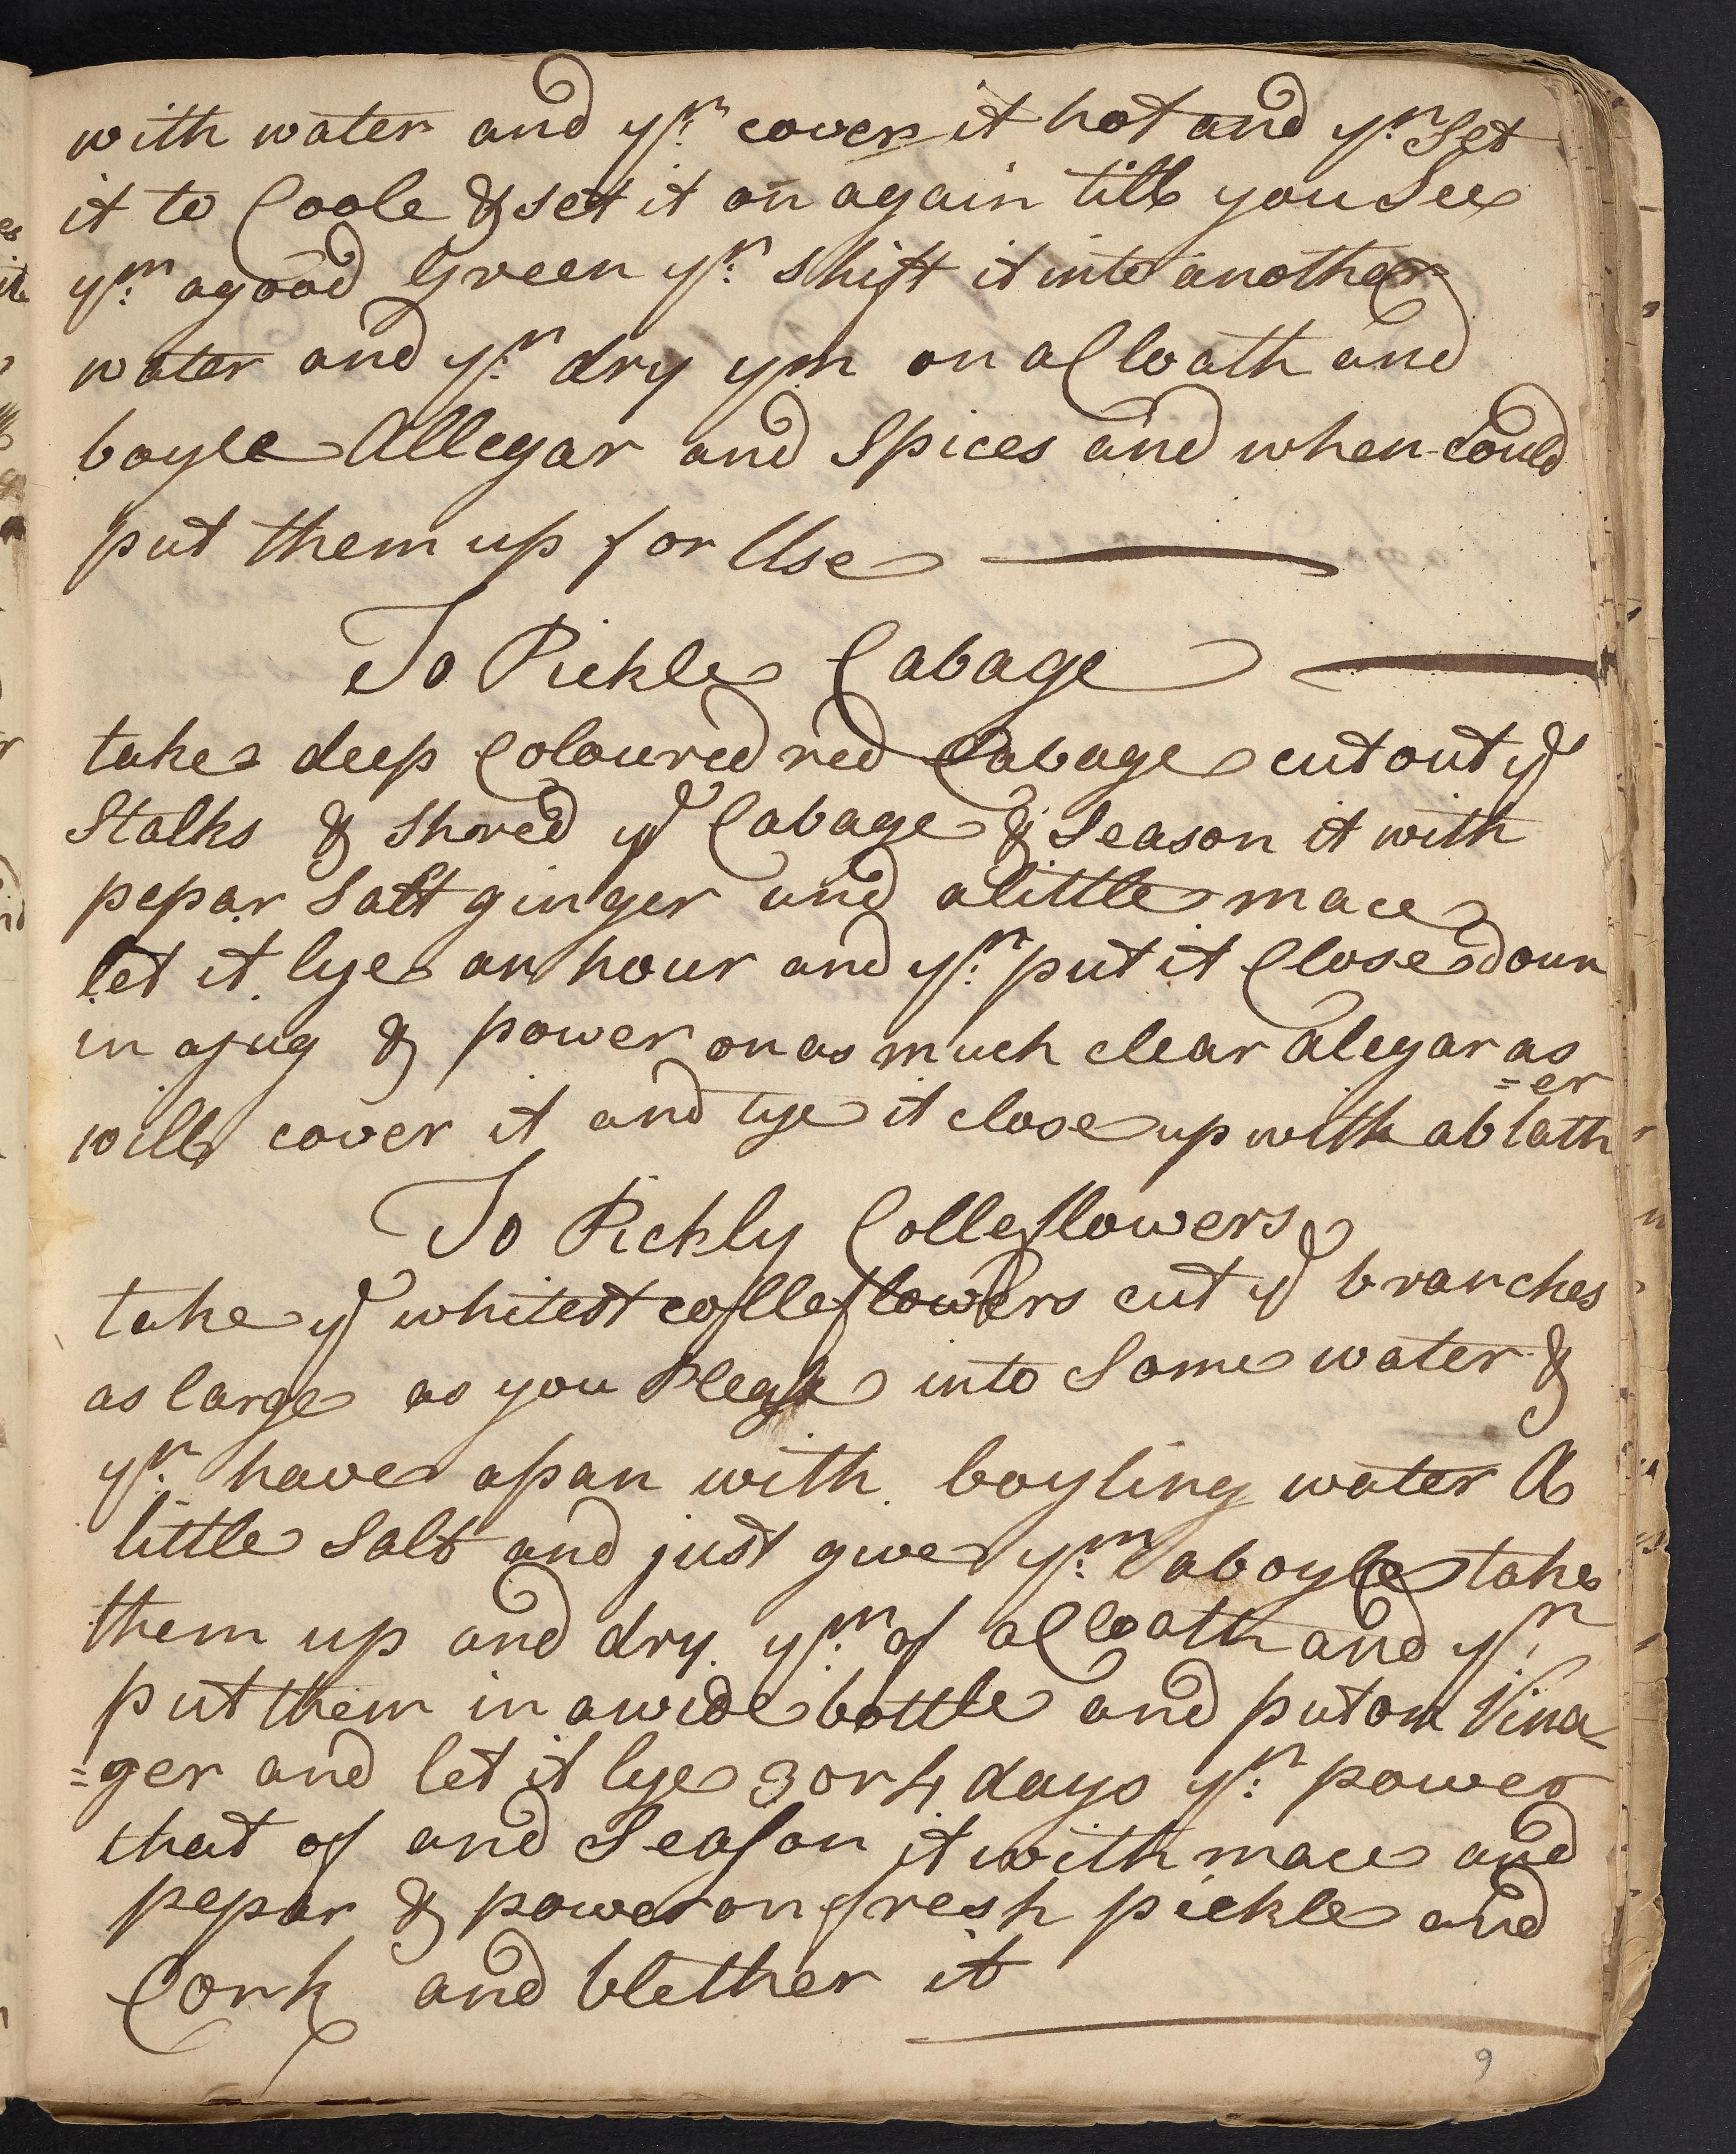 with water and yn: cover it hot and yn: Set
it to Coole & sett it on again till you See
ym: a good Green yn: shift it into another
water and yn: dry ym on a Cloath and
boyle Allegar and Spices and when could
put them up for Use
To Pickle Cabage
take deep Coloured red Cabage cut out ye
Stalks & shred ye Cabage & Season it with
pepar Salt ginger and a little mace
let it lye an hour and yn: put it Close doun
in a jug & power on as much clear alegar as
will cover it and tye it close up with a blath
=er
To Pickly Colleflowers
take ye whitest colleflowers cut ye branches
as large as you Please into Some water &
yn: have a pan with boyling water A
little Salt and just give ym: a boyle take
them up and dry ym: of a Cloath and yn:
put them in a wide bottle and put on Vina
=ger and let it lye 3 or 4 days yn: power
that of and Season it with mace and
pepar & power on fresh pickle and
Cork and blether it
9